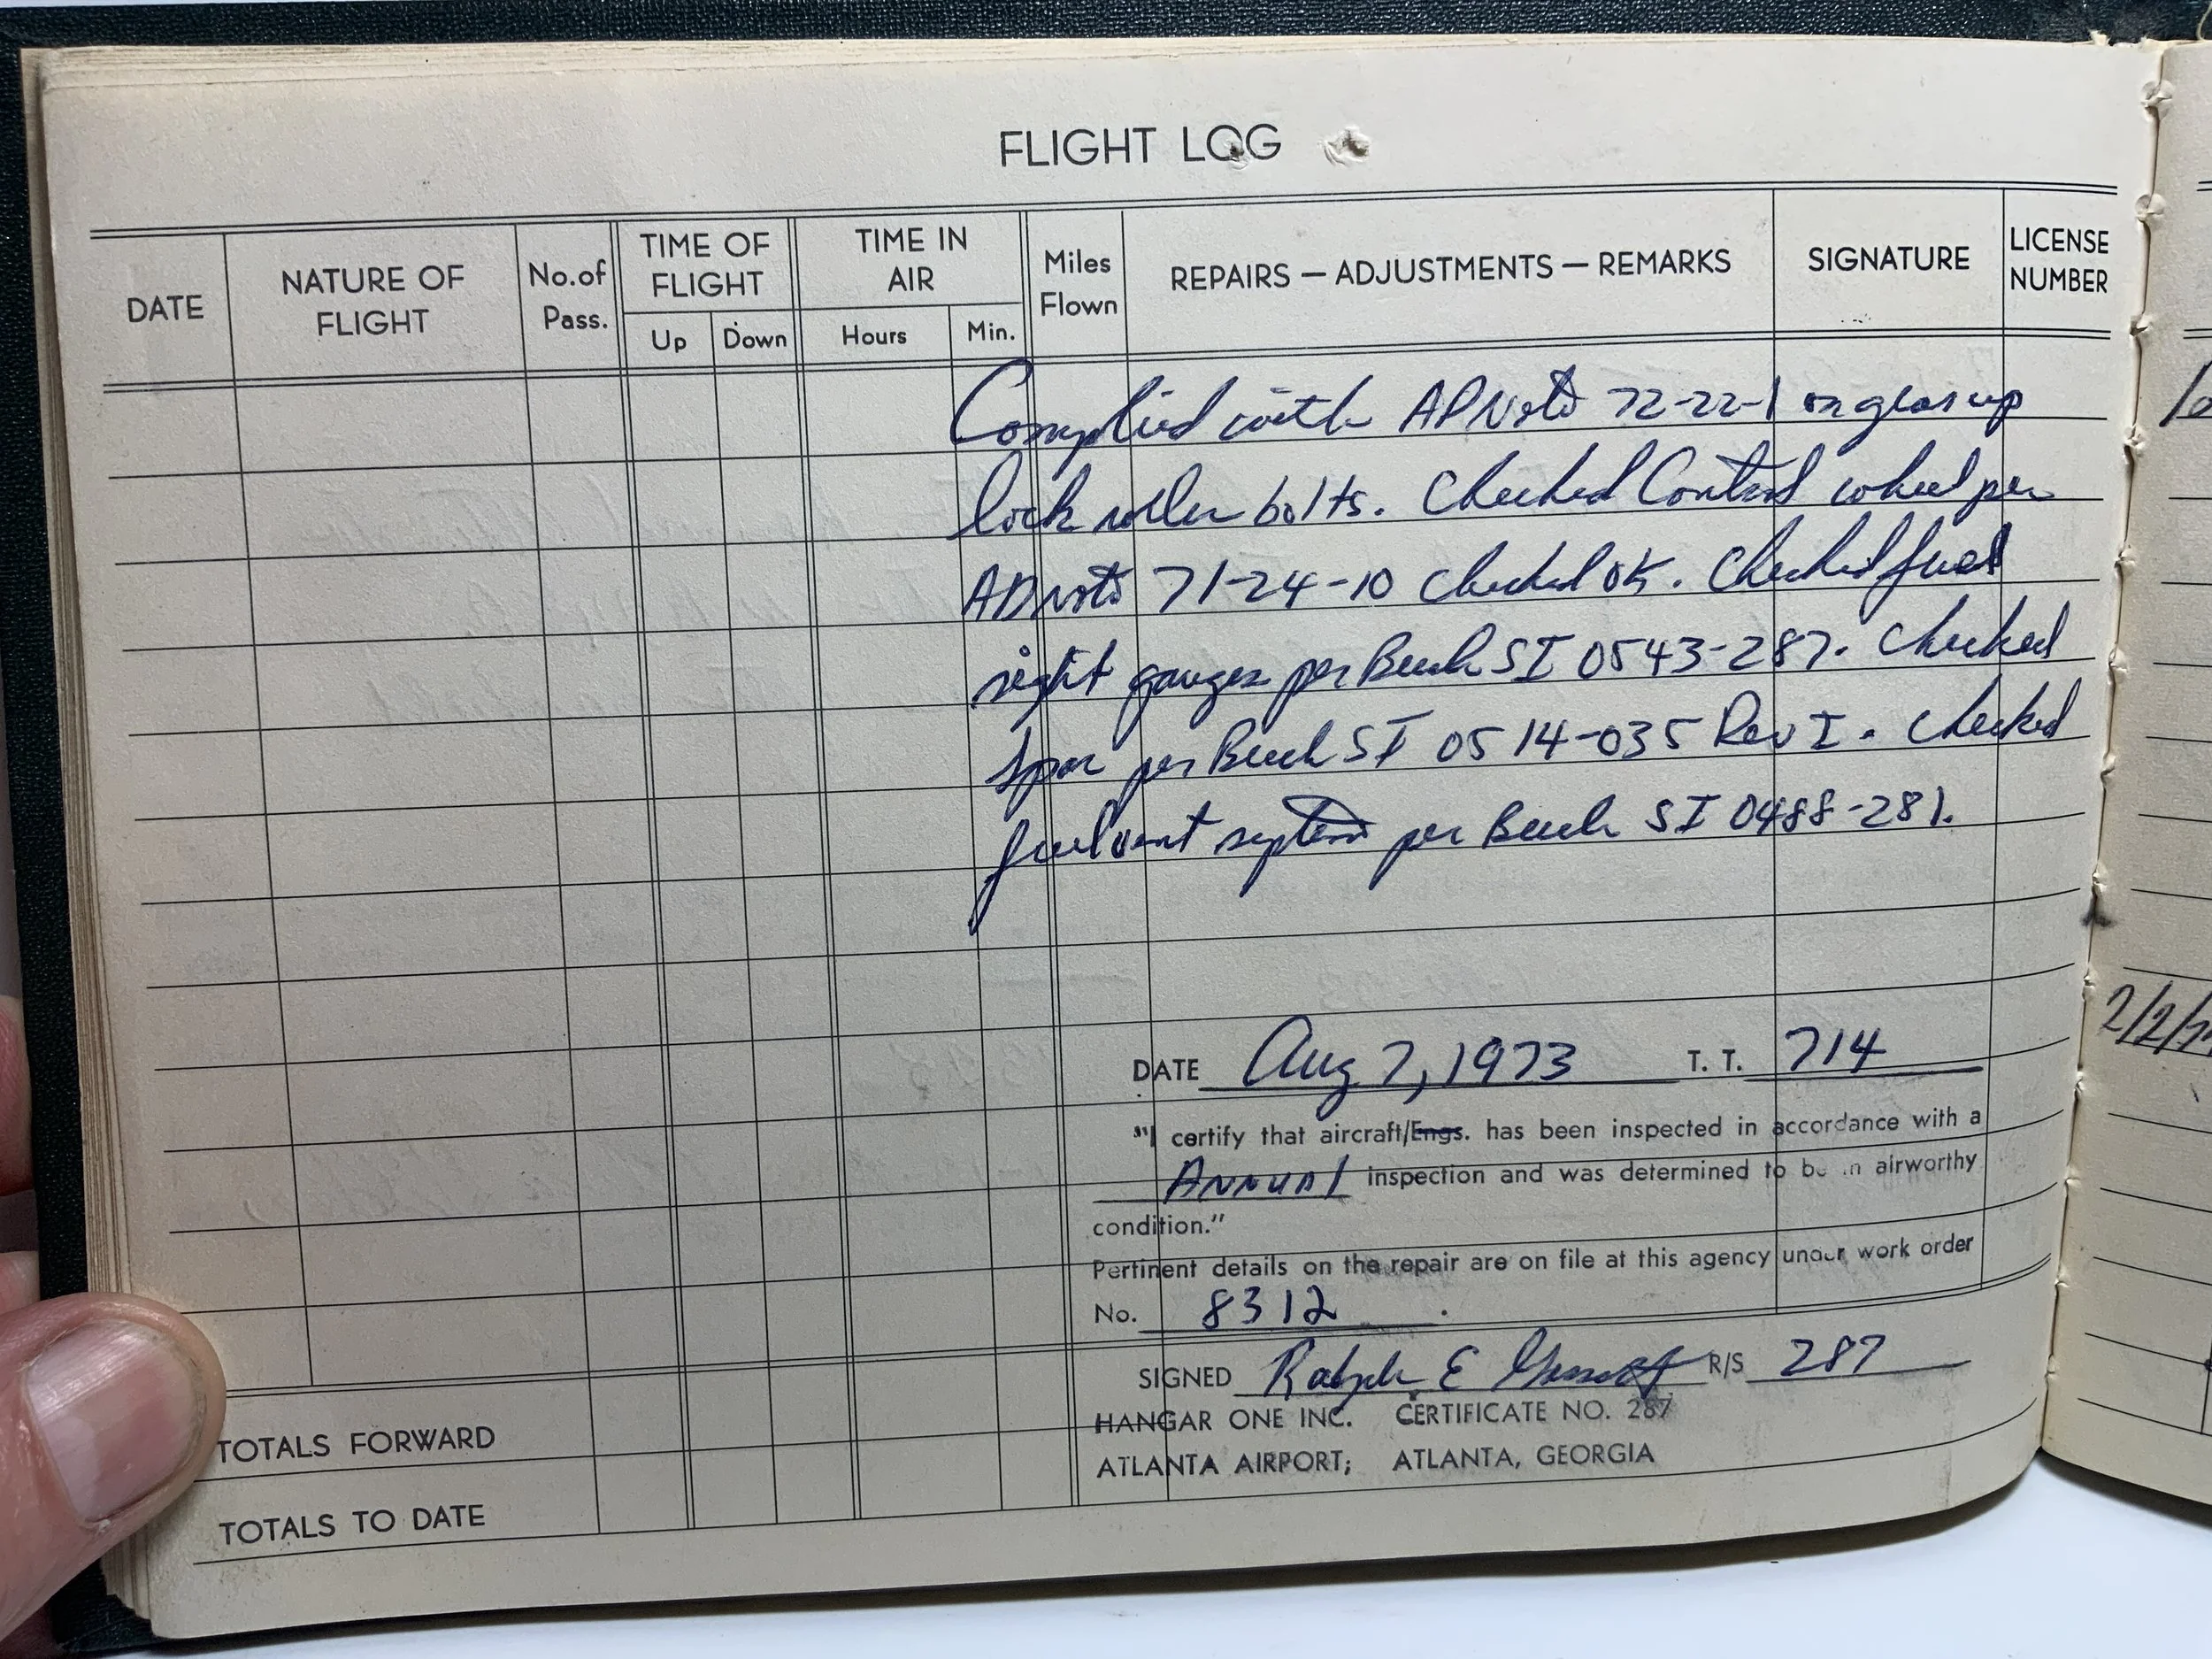 FLIGHT LOG
DATE NATURE OF FLIGHT No. of Pass. TIME OF FLIGHT Up Down TIME IN AIR Hours Min. Miles Flown REPAIRS — ADJUSTMENTS — REMARKS SIGNATURE LICENSE NUMBER
Complied with AD Note 72-22-1 on gear up
lock roller bolts. Checked Control wheel per
AD note 71-24-10 checked OK. Checked fuel
sight gauges per Beech SI 0543-287. Checked
spar per Beech SI 0514-035 Rev I. Checked
fuel vent system per Beech SI 0488-281.
DATE Aug 7, 1973 T. T. 714
"I certify that aircraft/Engs. has been inspected in accordance with a
Annual inspection and was determined to be in airworthy
condition."
Pertinent details on the repair are on file at this agency under work order
No. 8312 .
SIGNED Ralph E R/S 287
HANGAR ONE INC. CERTIFICATE NO. 287
ATLANTA AIRPORT; ATLANTA, GEORGIA
TOTALS FORWARD
TOTALS TO DATE
2/2/7